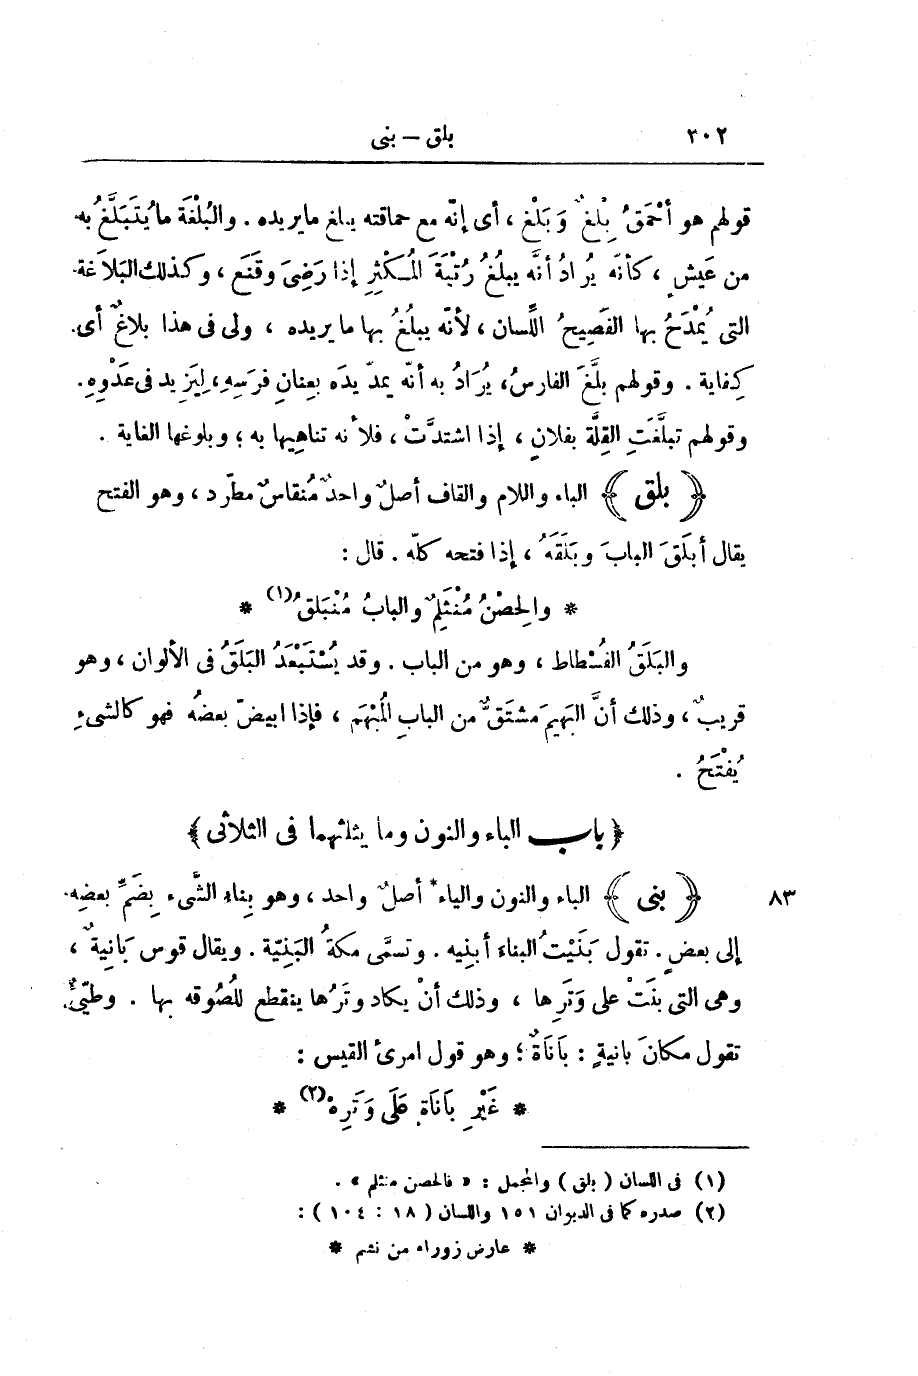 ٣٠٢
بلق — بنى
قولهم هو أَحْمَقُ بِلْغٌ وَبَلْغ ، أى إنّه مع حماقته يبلغ مايريده . والبُلْغَة ما يُتَبَلَّغُ به
من عَيشٍ ، كأنّه يُرادُ أنّه يبلُغُ رُتْبَةَ المُكْثِرِ إذا رَضِىَ وقَنَع ، وكذلك البَلاَغة
التى يُمْدَحُ بها الفَصِيحُ اللِّسان ، لأنّه يبلُغُ بها ما يريده ، ولى فى هذا بلاغٌ أى
كِفاية . وقولهم بلَّغَ الفارسُ، يُرَادُ به أنّه يمدّ يدَه بعِنانِ فرَسِهِ، لِيَزيد فى عَدْوِهِ .
وقولهم تبلَّغَتِ القِلّة بفلانٍ ، إذا اشتدَّتْ ، فلأنه تناهِيها به ؛ وبلوغها الغاية .
﴿ بلق ﴾ الباء واللام والقاف أصلٌ واحدٌ مُنقاسٌ مطّرد ، وهو الفتح
يقال أبلَقَ البابَ وبَلَقَهُ ، إذا فتحه كلّه . قال :
* والحِصْنُ مُنْثَلِمٌ والبابُ مُنْبَلِقُ(١) *
والبَلَقُ الفُسْطاط ، وهو من الباب . وقد يُسْتَبْعَدُ البَلَقُ فى الألوان ، وهو
قريبٌ ، وذلك أنَّ البَهِيمَ مشتَقٌّ من البابِ المُبْهَم ، فإذا ابيضّ بعضُه فهو كالشىءِ
يُفْتَحُ .
﴿ باب الباء والنون وما يثلثهما فى الثلاثى ﴾
٨٣
﴿ بنى ﴾ الباء والنون والياء* أصلٌ واحد ، وهو بِناءِ الشَّىء بِضَمِّ بعضِه
إلى بعضٍ . تقول بَنَيْتُ البناء أبنيه . وتسمَّى مكةُ البَنِيّة . ويقال قوس بَانِيةٌ ،
وهى التى بَنَتْ على وَتَرِها ، وذلك أنْ يكاد وتَرُها ينقطع للُصُوقه بها . وطَيِّئٌ
تقول مكانَ بانيةٍ : بَاناَةٌ ؛ وهو قول امرئ القيس :
* غَيْرِ بَاناَةٍ عَلَى وَتَرِهْ(٢) *
(١) فى اللسان ( بلق ) والمجمل : « فالحصن منثلم » .
(٢) صدره كما فى الديوان ١٥١ واللسان ( ١٨ : ١٠٤ ) :
* عارض زوراء من نشم *